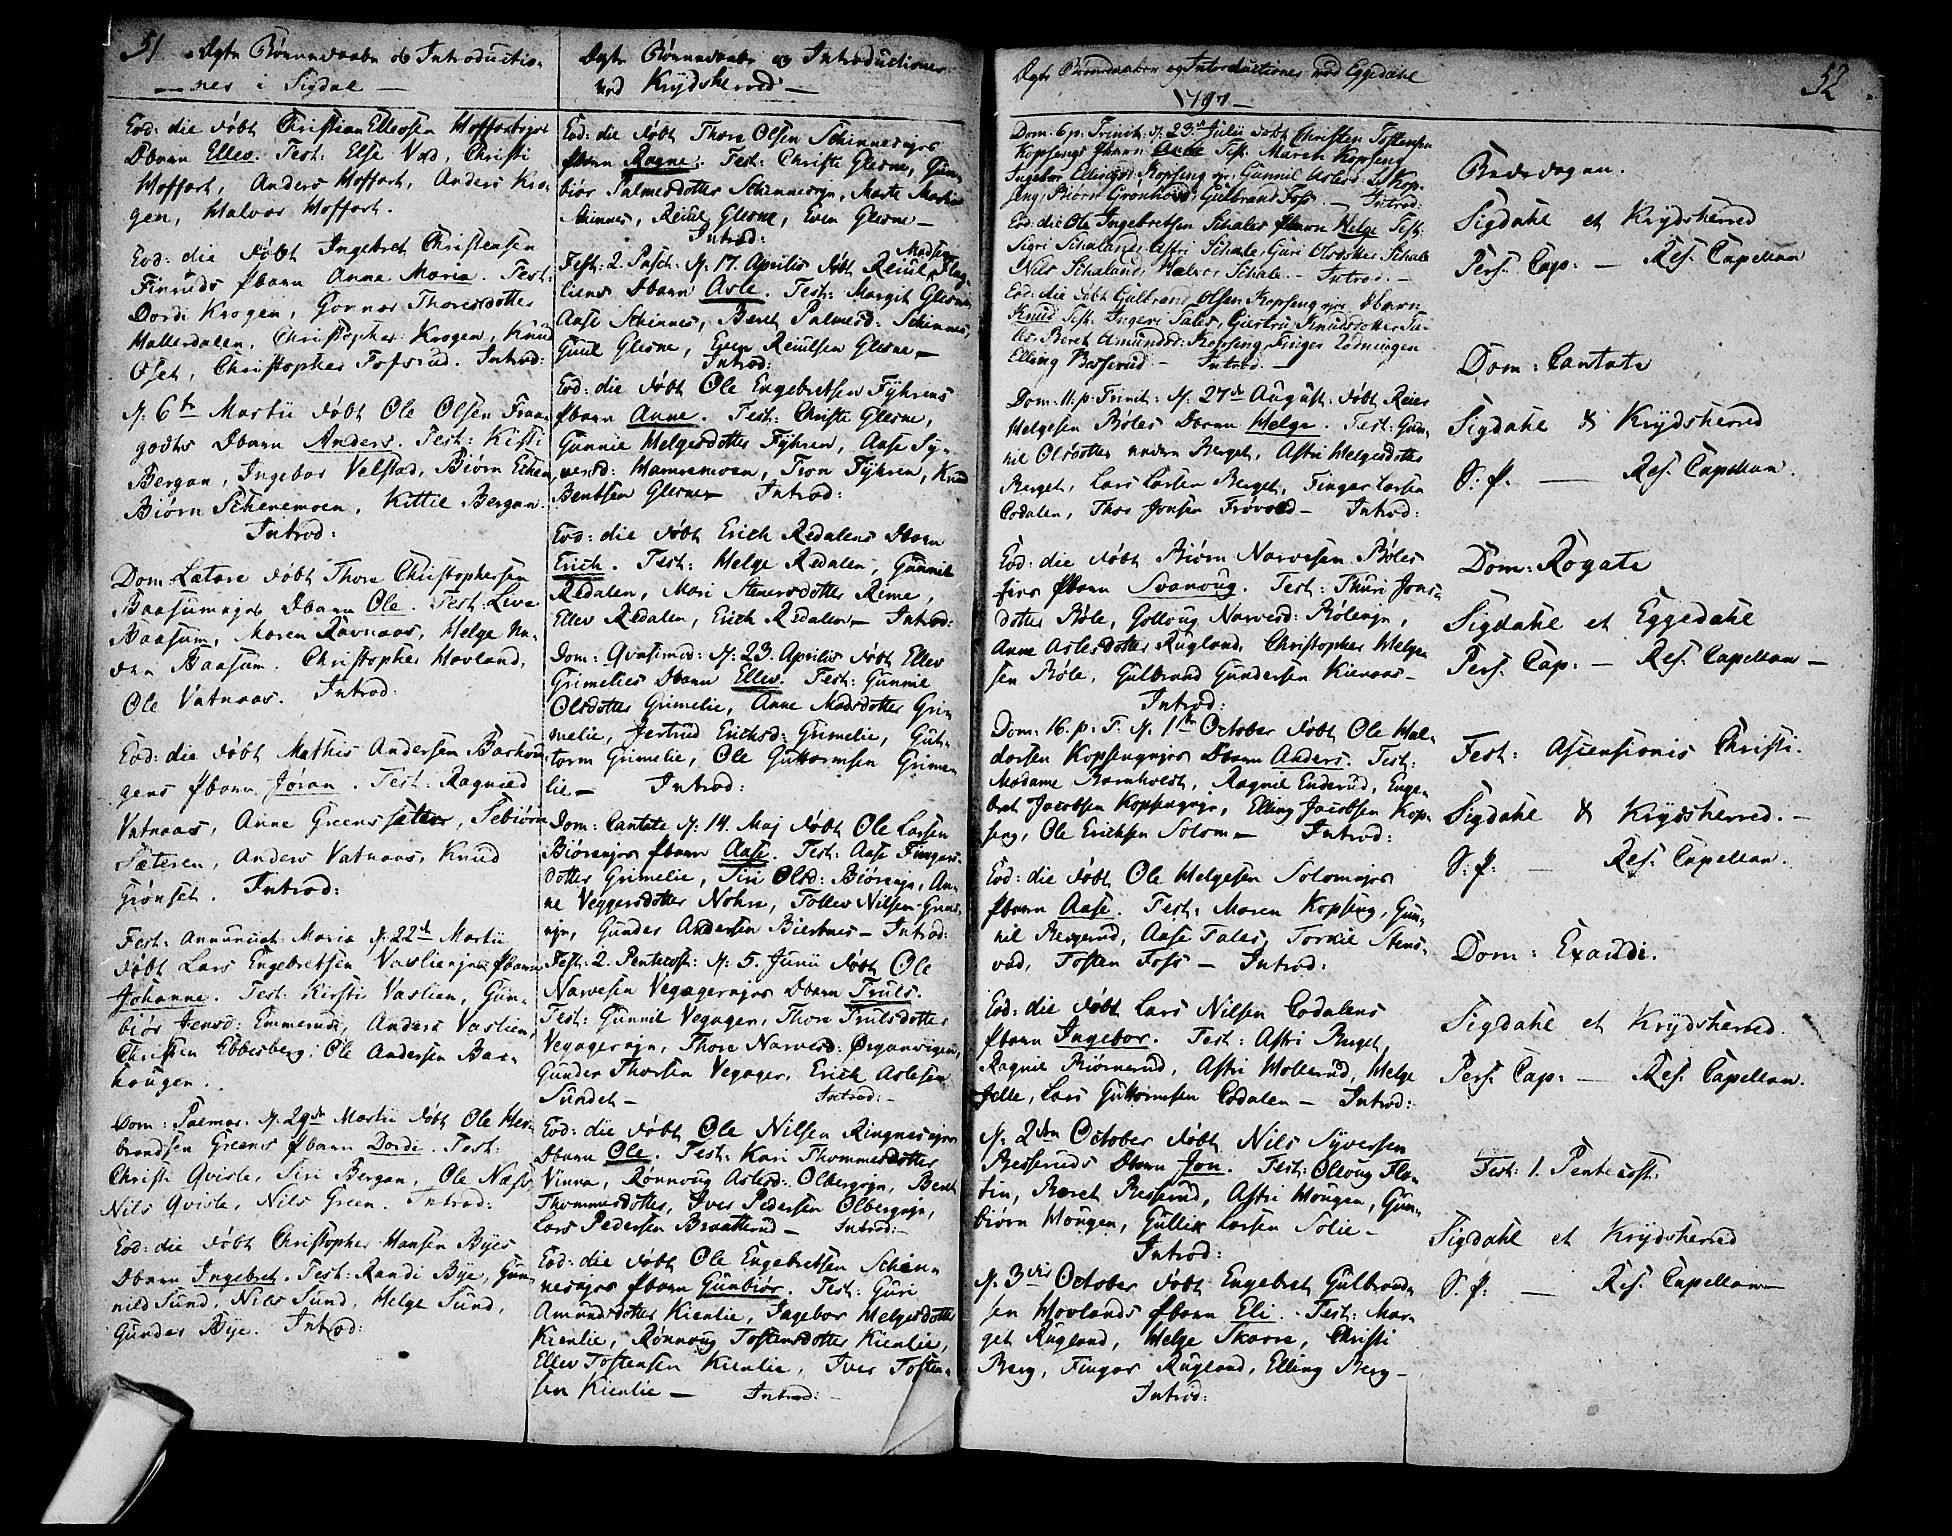 51 Ægte Børnedaaber og Introductio-
nes i Sigdal —
Eod: die døbt Christian Ellevsen Hoffartejer
Dbarn Ellev. Test: Else Vad, Christi
Hoffart, Anders Hoffart, Anders Kro-
gen, Halvor Hoffart.
Eod: die døbt Ingebret Christensen
Finruds Pbarn Anna Maria. Test:
Dordi Krogen, Gonnor Thoresdotter
Hallerdalen, Christopher Krogen, Knud
Oset, Christopher Tofsrud. Introd:
d: 6te Martii døbt Ole Olsen Fraa-
godts Dbarn Anders. Test: Kisti
Bergan, Ingebor Velstad, Biørn Eken,
Biørn Schenemoen, Kittil Bergan.
Introd:
Dom: Lætare døbt Thore Christophersen
Baasumejes Dbarn Ole. Test: Live
Baasum, Maren Ravnaas, Helge Ne-
dre Baasum. Christopher Hovland,
Ole Vatnaas. Introd:
Eod: die døbt Mathis Andersen Barhou-
gens Pbarn Jøran. Test: Ragnild
Vatnaas, Anne Greensæther, Tebiørn
Sæteren, Anders Vatnaas, Knud
Grønset. Introd:
Fest: Annunciat: Mariæ d: 22de Martii
døbt Lars Engebretsen Vaslienejes Pbarn
Johanne. Test: Kirsti Vaslien, Gun-
biør Jensd: Emmerud, Anders Vaslien,
Christen Ebbesberg, Ole Andersen Bar-
hougen.
Dom: Palmar. d: 29de Martii døbt Ole Hel-
brandsen Greens Pbarn Dordi. Test:
Christi Qvisle, Siri Bergan, Ole Næss
Nils Qvisle, Nils Green. Introd:
Eod: die døbt Christopher Hansen Byes
Dbarn Ingebret. Test: Randi Bye, Gun-
nild Sund, Nils Sund, Helge Sund,
Gunder Bye. Introd:
Ægte Børnedaaber og Introductiones
ved Krydsherred —
Eod: die døbt Thore Olsen Schinnesejes
Pbarn Ragne. Test: Christi Glesne, Gun-
biør Palmesdotter Schinnesejn, Marte
Schinnes, Reiul Glesne, Even Glesne —
Introd:
Fest: 2. Pasch: d: 17. Aprilis døbt Reiul Madsen Slag-
liens Dbarn Asle. Test: Margit Glesne,
Aase Schinnes, Beret Palmesd: Schinnes,
Guul Glesne, Even Reiulsen Glesne —
Introd:
Eod: die døbt Ole Engebretsen Fyhrens
Pbarn Anne. Test: Christi Glesne,
Gunnil Helgesdotter Fyhren, Aase Sy-
versd: Hammemoen, Tron Fyhren, Knud
Bentsen Glesne — Introd:
Eod: die døbt Erich Redalens Dbarn
Erich. Test: Helge Redalen, Gunnil
Redalen, Mari Stenersdotter Reime,
Ellev Redalen, Erich Redalen — Introd:
Dom: Qvasimod: d: 23. Aprilis døbt Ellev
Grimelies Dbarn Ellev. Test: Gunnil
Olsdotter Grimelie, Anne Madsdotter Gri-
melie, Jertrud Ericksd: Grimelie, Gut-
torm Grimelie, Ole Guttormsen Grime-
lie — Introd:
Dom: Cantate d: 14. Maj døbt Ole Larsen
Biørenejes Pbarn Aase. Test: Aase Fingars-
dotter Grimelie, Siri Olsd: Biørenejn, An-
ne Veggersdotter Nohre, Tollev Nilsen
ejn, Gunder Andersen Biertnes — Introd:
Fest: 2. Pentecost: d: 5. Junii døbt Ole
Narvesen Vegagerejes Dbarn Truls.
Test: Gunnil Vegager, Thore Trulsdotter
Vegagerejn, Thore Narvesd: Ørgenvigen,
Gunder Thorsen Vegager, Erich Aslesen
Sundet — Introd:
Eod: die døbt Ole Nilsen Ringnesejes
Dbarn Ole. Test: Kari Thommesdotter
Vinna, Rønnoug Aslesd: Olbergejn, Beret
Thommesdotter, Iver Pedersen Olbergejn,
Lars Pedersen Braatlend — Introd:
Eod: die døbt Ole Engebretsen Schin-
nesejes Pbarn Gunbiør. Test: Guri
Amundsdotter Kienlie, Ingebor Helgesdotter
Kienlie, Rønnoug Tostensdotter Kienlie,
Ellev Tostensen Kienlie, Iver Tosten-
sen Kienlie — Introd:
Ægte Børnedaaber og Introductiones ved Eggedahl 52
1797 —
Dom. 6 p. Trinit: d: 23de Julii døbt Christen Tostensen
Kopsengs Pbarn Anne Test: Mareth Kopseng
Ingebor Kopseng ejn, Gunnil Aslesd: Kop-
seng, Biørn Grønhovd, Gulbrand Foss — Introd:
Eod: die Ole Ingebretsen Schales Pbarn Helge Test:
Sigri Schaland, Astri Schale, Guri Olsdotter Schale
Nils Schaland, Halvor Schale — Introd:
Eod: die døbt Gulbrand Olsen Kopseng ejes Dbarn
Knud Test: Ingeri Tales, Giertru Knudsdotter Ta-
les, Beret Amundsd: Kopseng, Finger Rødningen
Elling Besserud — Introd: —
Dom. 11. p: Trinit: d: 27de August: døbt Reier
Helgesen Bøles Dbarn Helge. Test: Gun-
nil Olsdotter nedre Berget, Astri Helgesdotter
Berget, Lars Larsen Berget, Fingar Larsen
Codalen, Thor Jonsen Frøvold — Introd:
Eod: die døbt Biørn Narvesen Bøles
ejes Pbarn Svanoug. Test: Thuri Jons-
dotter Bøle, Gollaug Narvesd: Bøleejn,
Anne Aslesdotter Rugland, Christopher Helge-
sen Bøle, Gulbrand Gundersen Kienaas —
Introd:
Dom: 16. p. T. d: 1ste October døbt Ole Hal-
dorsen Kopsengejes Dbarn Anders. Test:
Madame Barnholdt, Ragnil Enderud, Enge-
bret Jacobsen Kopsengejn, Elling Jacobsen Kop-
seng, Ole Erichsen Solem — Introd:
Eod: die døbt Ole Helgesen Solemejes
Pbarn Aase. Test: Maren Kopseng, Gun-
nil Besserud, Aase Tales, Torkil Stens-
rud, Tosten Foss — Introd:
Eod: die døbt Lars Nilsen Codalens
Pbarn Ingebor. Test: Astri Berget,
Ragnil Biørnerud, Astri Mollerud, Helge
Jelle, Lars Guttormsen Codalen — Introd:
d: 2den October døbt Nils Syversen
Besseruds Dbarn Jon. Test: Olloug Flo-
tin, Beret Besserud, Astri Hougen, Gun-
biørn Hougen, Gullik Larsen Solie —
Introd:
d: 3die October døbt Engebret Gulbrand-
sen Hovlands Pbarn Eli. Test: Mar-
get Rugland, Helge Skarre, Christi
Berg, Fingar Rugland, Elling Berg —
Introd:
Bededagen.
Sigdahl et Krydsherred
Pers. Cap: — Res. Capellan
Dom: Cantate
Sigdahl & Krydsherred
S. P. — Res. Capellan.
Dom: Rogate
Sigdahl et Eggedahl
Pers. Cap: — Res. Capellan —
Fest: Ascensionis Christi.
Sigdahl & Krydsherred. —
S. P: — Res. Capellan.
Dom: Exaudi.
Sigdahl et Krydsherred.
Pers. Cap: — Res. Capellan.
Fest: 1. Pentecost:
Sigdahl et Krydsherred
S. P: — Res. Capellan —